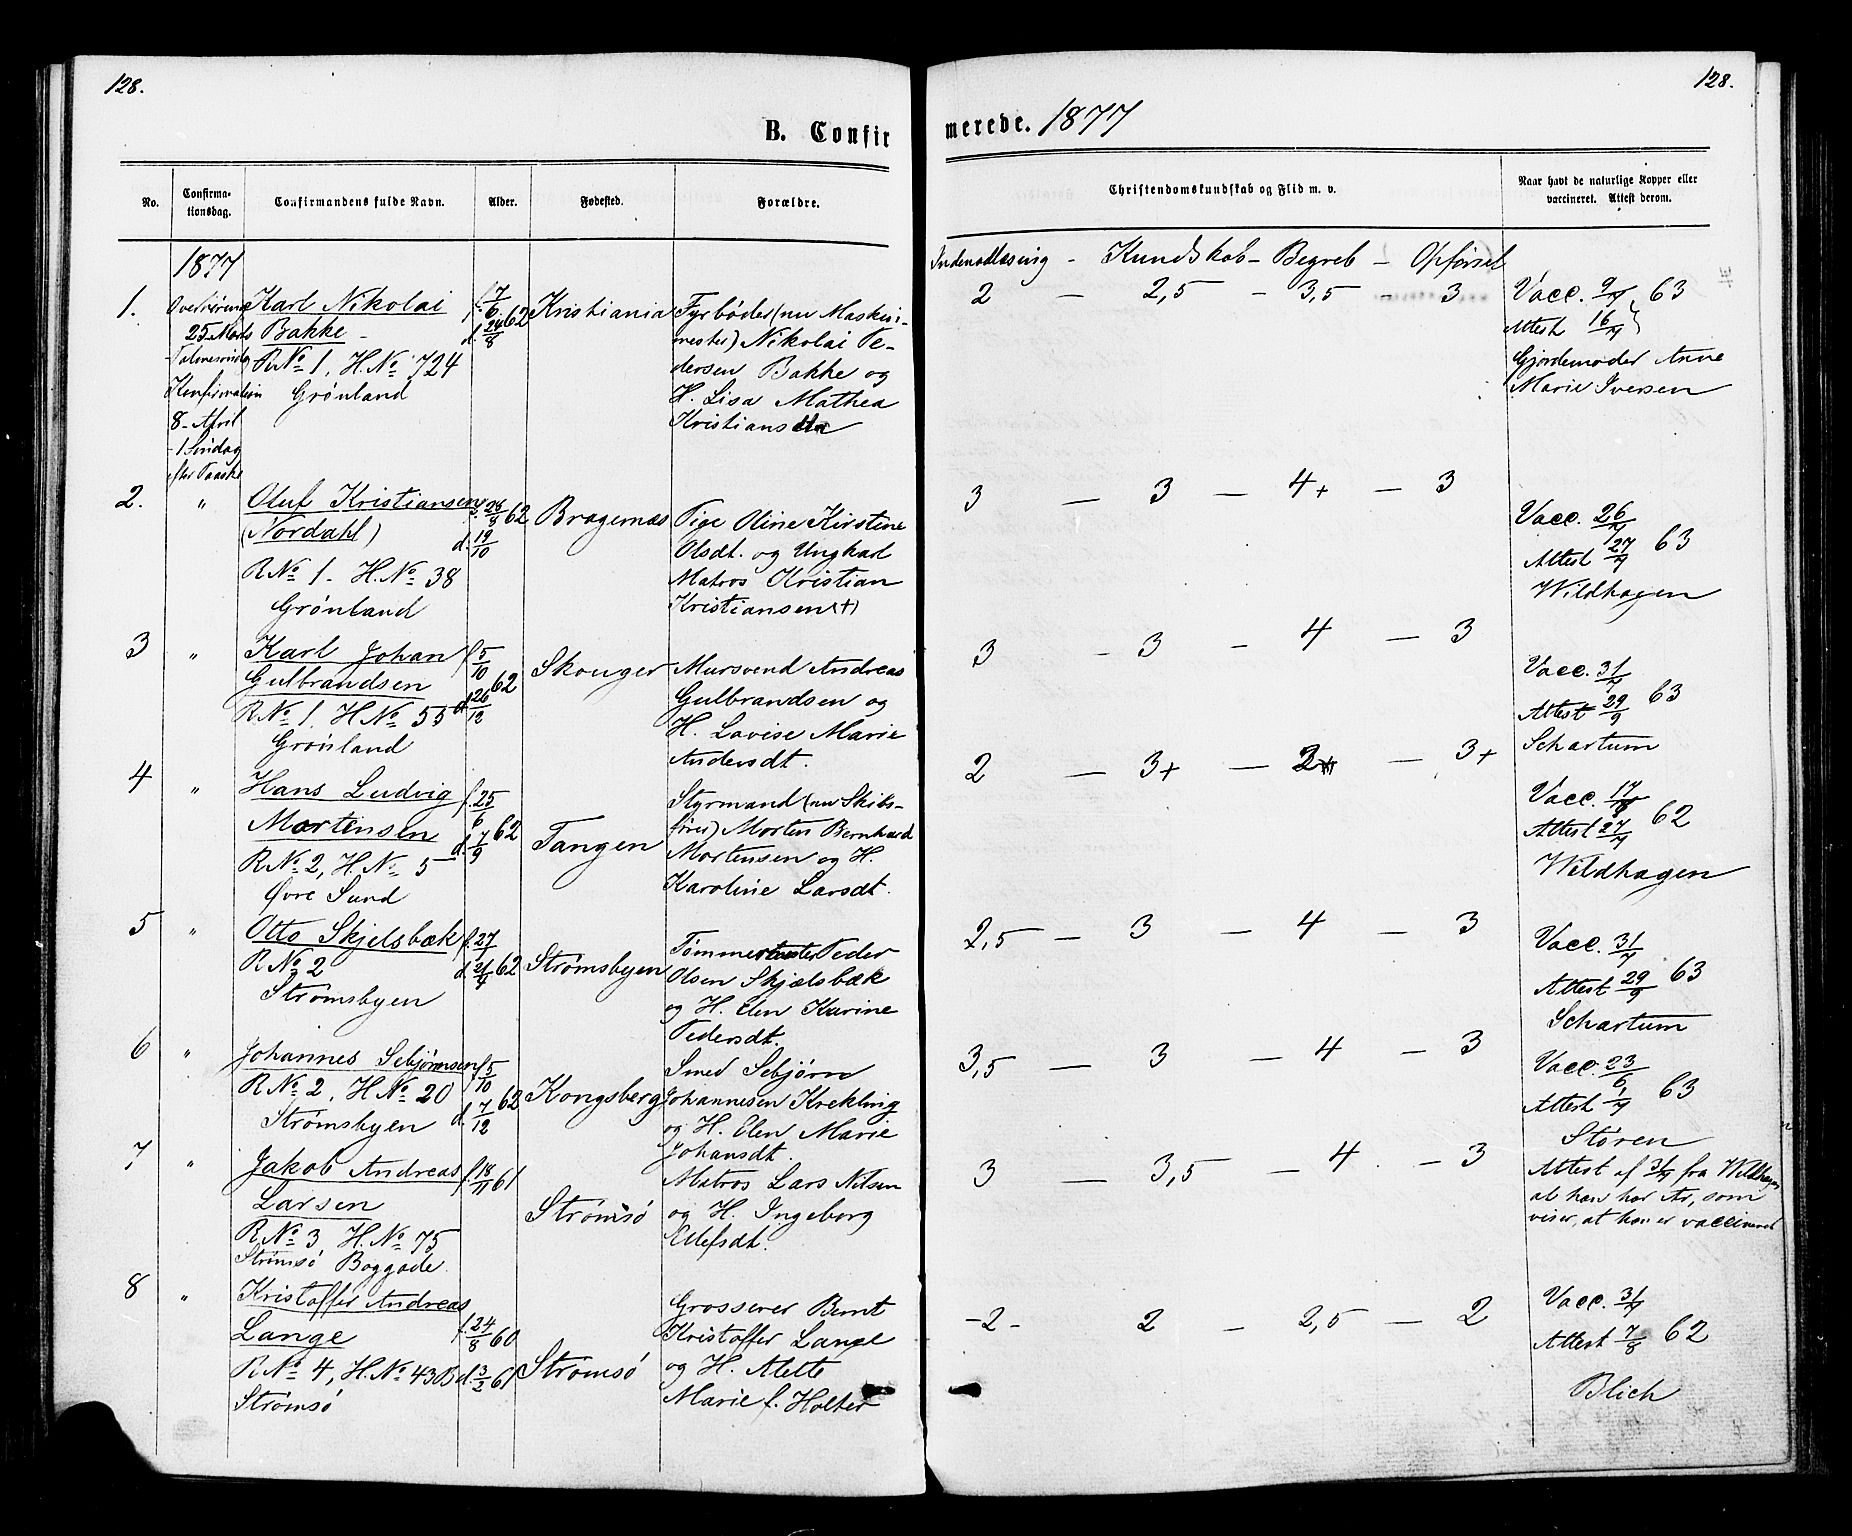 128.
128.
B. Confir
merede. 1877
No.
Confirma-
tionsdag.
Confirmandens fulde Navn.
Alder.
Fødested.
Forældre.
Christendomskundskab og Flid m. v.
Naar havt de naturlige Kopper eller
vaccineret. Attest derom.
1877
Indenadlæsning - Kundskab - Begreb - Opførsel
1.
25 Marts
Konfirmation
8 - April
- 1 Søndag
efter Paaske
Karl Nikolai
Bakke -
R No 1, H. No 724
Grønland
f. 7/6 62
d. 24/8
Kristiania
Fyrbøder (nu Maskin-
mester) Nikolai Pe-
dersen Bakke og
H. Lisa Mathea
2 - 2,5 - 3,5 - 3
Vacc. 9/7 63
Attest 16/7
Gjordemoder Anne
Marie Iversen
2. "
Oluf Kristiansen
(Nordahl)
R No 1 - H. No 38
Grønland
f. 28/8 62
d. 19/10
Bragernæs
Pige Oline Kirstine
Olsdt. og Ungkarl
Matros Kristian
Kristiansen (+)
3 - 3 - 4+ - 3
Vacc. 26/7
Attest 27/7 63
Wildhagen
3 "
Karl Johan
Gulbrandsen
R No 1. H No 55
Grønland
f. 5/10 62
d. 26/12
Skouger
Mursvend Andreas
Gulbrandsen og
H. Lovise Marie
Andersdt.
3 - 3 - 4 - 3
Vacc. 3/7
Attest 29/9 63
Schartum
4 "
Hans Ludvig
Mortensen
R No 2, H. No 5
Øvre Sund
f. 25/6 62
d. 7/9
Tangen
Styrmand (nu Skibs-
fører) Morten Bernhard
Mortensen og H.
Karoline Larsdt.
2 - 3+ - - 3+
Vacc.
Attest 27/7 62
Wildhagen
5 "
Otto Skjelsbæk
R No 2
Strømsbyen
f. 27/1 62
d. 21/4
Strømsbyen
Peder
Olsen Skjælsbæk
og H. Elen Karine
Pedersdt.
2,5 - 3 - 4 - 3
Vacc. 3/7
Attest 29/9 63
Schartum
6 "
Johannes Sebjørnsen
R No 2, H No 20
Strømsbyen
f. 5/10 62
d. 7/12
Kongsberg
Smed Sebjørn
Johannesen Krekling
og H. Elen Marie
Johansdt.
3,5 - 3 - 4 - 3
Vacc. 23/6
Attest 1/7 63
Støren
7 "
Jakob Andreas
Larsen
R No 3 H. No 75
Strømsø Boggade
f. 18/11 61
Strømsø
Matros Lars Nilsen
og H. Ingeborg
Eilefsdt.
3 - 3,5 - 4 - 3
Attest af 3/4 fra Wildhagen
at han har Ar, som
viser, at han er vaccineret
8 "
Kristoffer Andreas
Lange
R No 4, H. No 43B
Strømsø
f. 24/8 60
d. 3/2 61
Strømsø
Grosserer Bernt
Kristoffer Lange
og H. Alette
Marie f. Holter
- 2 - 2 - 2,5 - 2
Vacc. 31/7
Attest 7/8 62
Blich